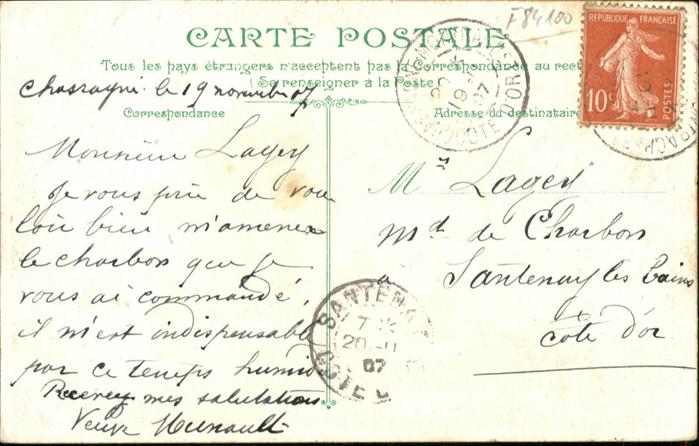 F84100
CARTE POSTALE
Tous les pays étrangers n'acceptent pas la Correspondance au recto
(Se renseigner à la Poste)
Chassagne le 19 novembre 07
Correspondance
Monsieur Lagey
Je vous prie de vou
loir bien m'amener
le charbon que je
vous ai commandé,
il m'est indispensable
par ce temps humide
Recevez mes salutations
Veuve
Adresse du destinataire
Mr Lagey
Md de Charbons
a Santenay les bains
côte d'or
REPUBLIQUE FRANÇAISE
10c
POSTES
19
07
COTE D'OR
SANTENAY
7
20-11
07
COTE D